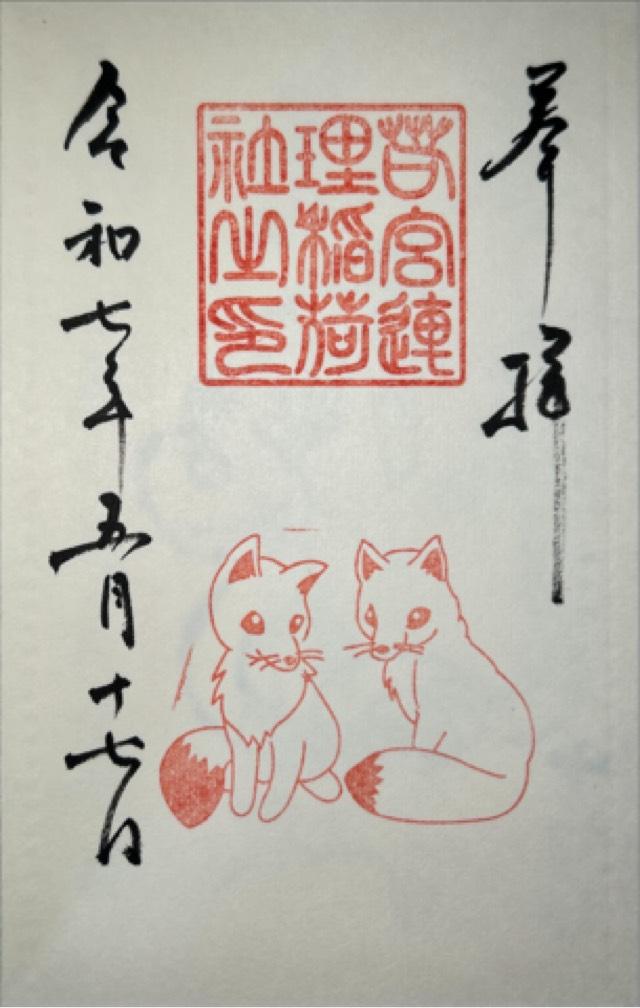 奉拝
若宮連
理稲荷
社之印
令和七年五月十七日